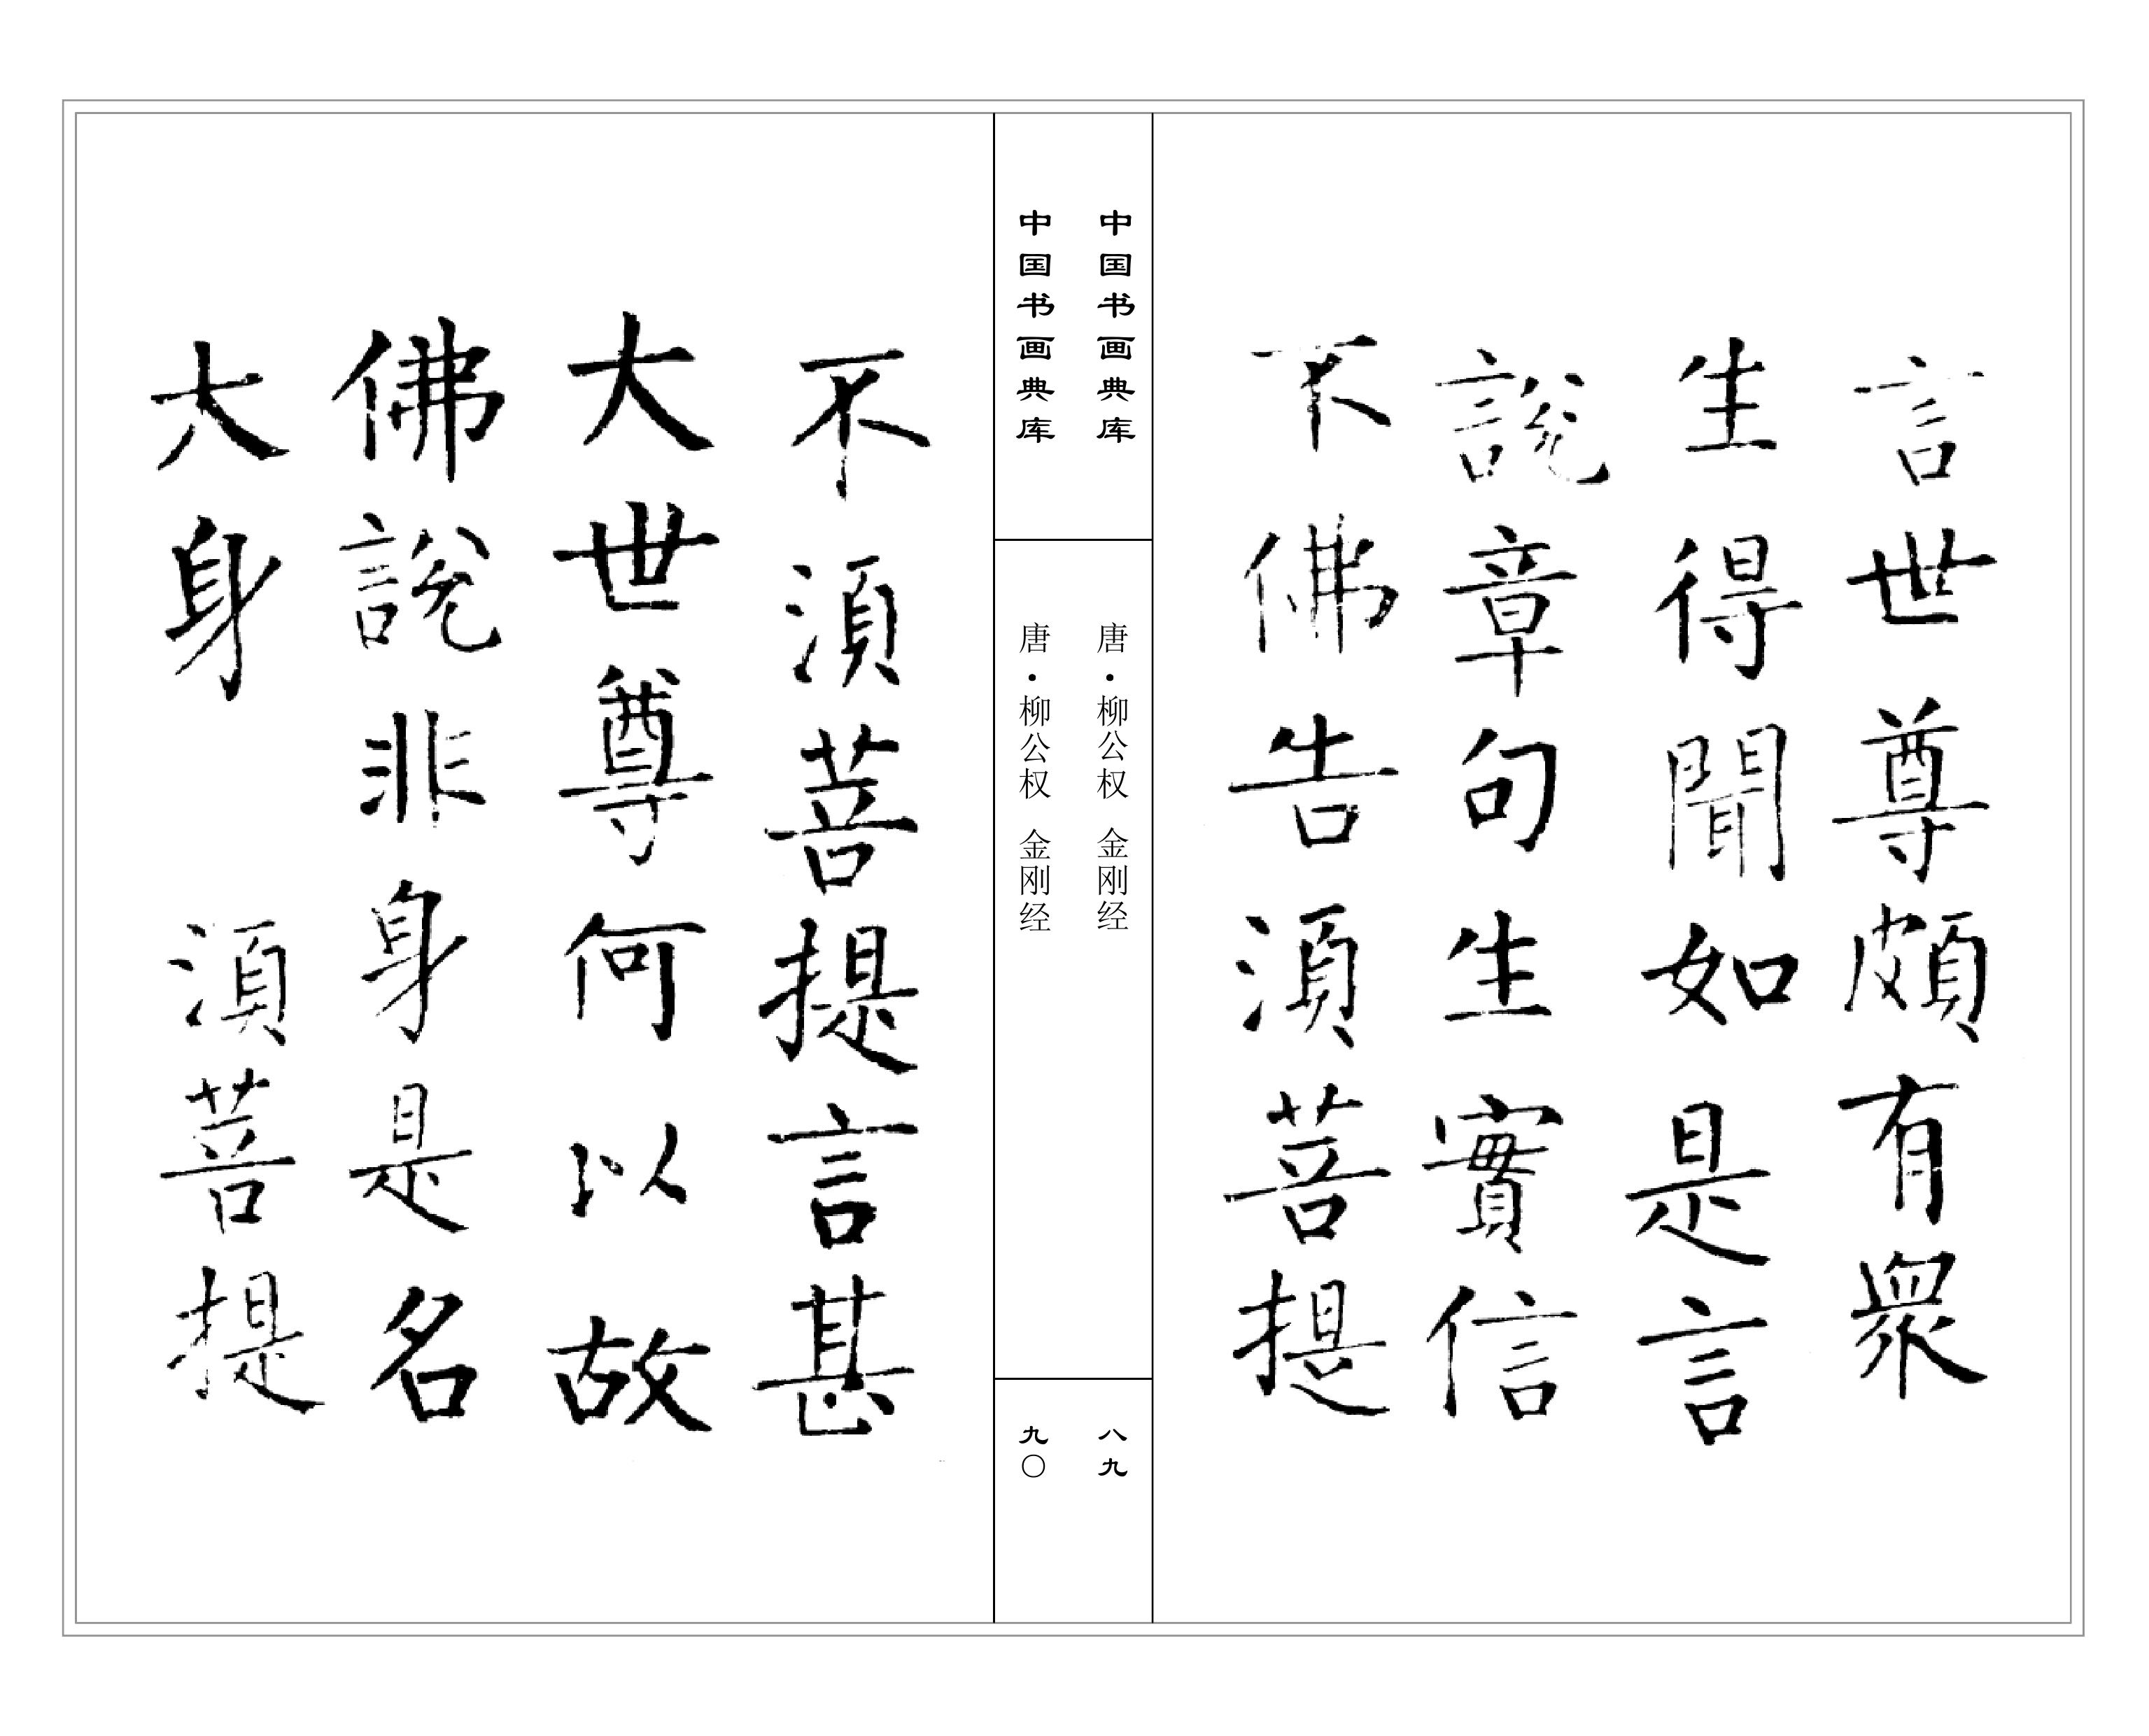 言世尊頗有衆
生得聞如是言
說章句生實信
不佛告湏菩提
中国书画典库
唐·柳公权 金刚经
八九
中国书画典库
唐·柳公权 金刚经
九〇
不湏菩提言甚
大世尊何以故
佛說非身是名
大身 湏菩提